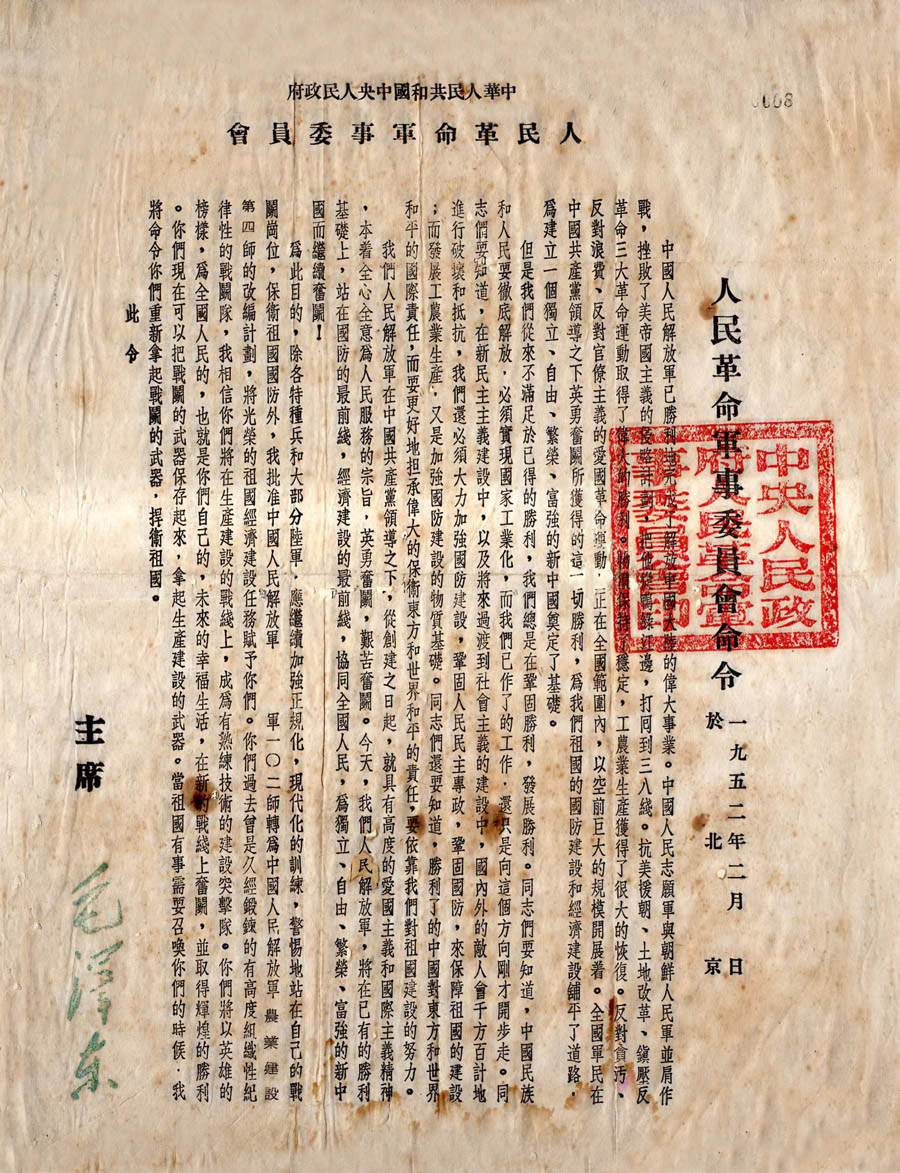 府政民人央中國和共民人華中
會員委事軍命革民人
0008
人民革命軍事委員會命令
一九五二年二月　日
於北京
中國人民解放軍已勝利地完成了解放中國大陸的偉大事業。中國人民志願軍與朝鮮人民軍並肩作
戰，挫敗了美帝國主義的侵略計劃，把他從鴨綠江邊，打囘到三八綫。抗美援朝、土地改革、鎭壓反
革命三大革命運動取得了偉大的勝利。物價保持了穩定，工農業生產獲得了很大的恢復。反對貪汚、
反對浪費、反對官僚主義的愛國革命運動，正在全國範圍內，以空前巨大的規模開展着。全國軍民在
中國共產黨領導之下英勇奮鬭所獲得的這一切勝利，爲我們祖國的國防建設和經濟建設鋪平了道路，
爲建立一個獨立、自由、繁榮、富強的新中國奠定了基礎。
但是我們從來不滿足於已得的勝利，我們總是在鞏固勝利，發展勝利。同志們要知道，中國民族
和人民要徹底解放，必須實現國家工業化，而我們已作了的工作，還只是向這個方向剛才開步走。同
志們要知道，在新民主主義建設中，以及將來過渡到社會主義的建設中，國內外的敵人會千方百計地
進行破壞和抵抗，我們還必須大力加強國防建設，鞏固人民民主專政，鞏固國防，來保障祖國的建設
；而發展工農業生產，又是加強國防建設的物質基礎。同志們還要知道，勝利了的中國對東方和世界
和平的國際責任，而要更好地担承偉大的保衞東方和世界和平的責任，要依靠我們對祖國建設的努力。
我們人民解放軍在中國共產黨領導之下，從創建之日起，就具有高度的愛國主義和國際主義精神
，本着全心全意爲人民服務的宗旨，英勇奮鬭，艱苦奮鬭。今天，我們人民解放軍，將在已有的勝利
基礎上，站在國防的最前綫，經濟建設的最前綫，協同全國人民，爲獨立、自由、繁榮、富強的新中
國而繼續奮鬭！
爲此目的，除各特種兵和大部分陸軍，應繼續加強正規化，現代化的訓練，警惕地站在自己的戰
鬭崗位，保衞祖國國防外，我批准中國人民解放軍　　軍一〇二師轉爲中國人民解放軍農業建設
第四師的改編計劃，將光榮的祖國經濟建設任務賦予你們。你們過去曾是久經鍛鍊的有高度組織性紀
律性的戰鬭隊，我相信你們將在生產建設的戰綫上，成爲有熟練技術的建設突擊隊。你們將以英雄的
榜樣，爲全國人民的，也就是你們自己的，未來的幸福生活，在新的戰綫上奮鬭，並取得輝煌的勝利
。你們現在可以把戰鬭的武器保存起來，拿起生產建設的武器。當祖國有事需要召喚你們的時候，我
將命令你們重新拿起戰鬭的武器，捍衞祖國。
此令
主席
毛澤東
中央人民政
府人民革命軍
事委員會印